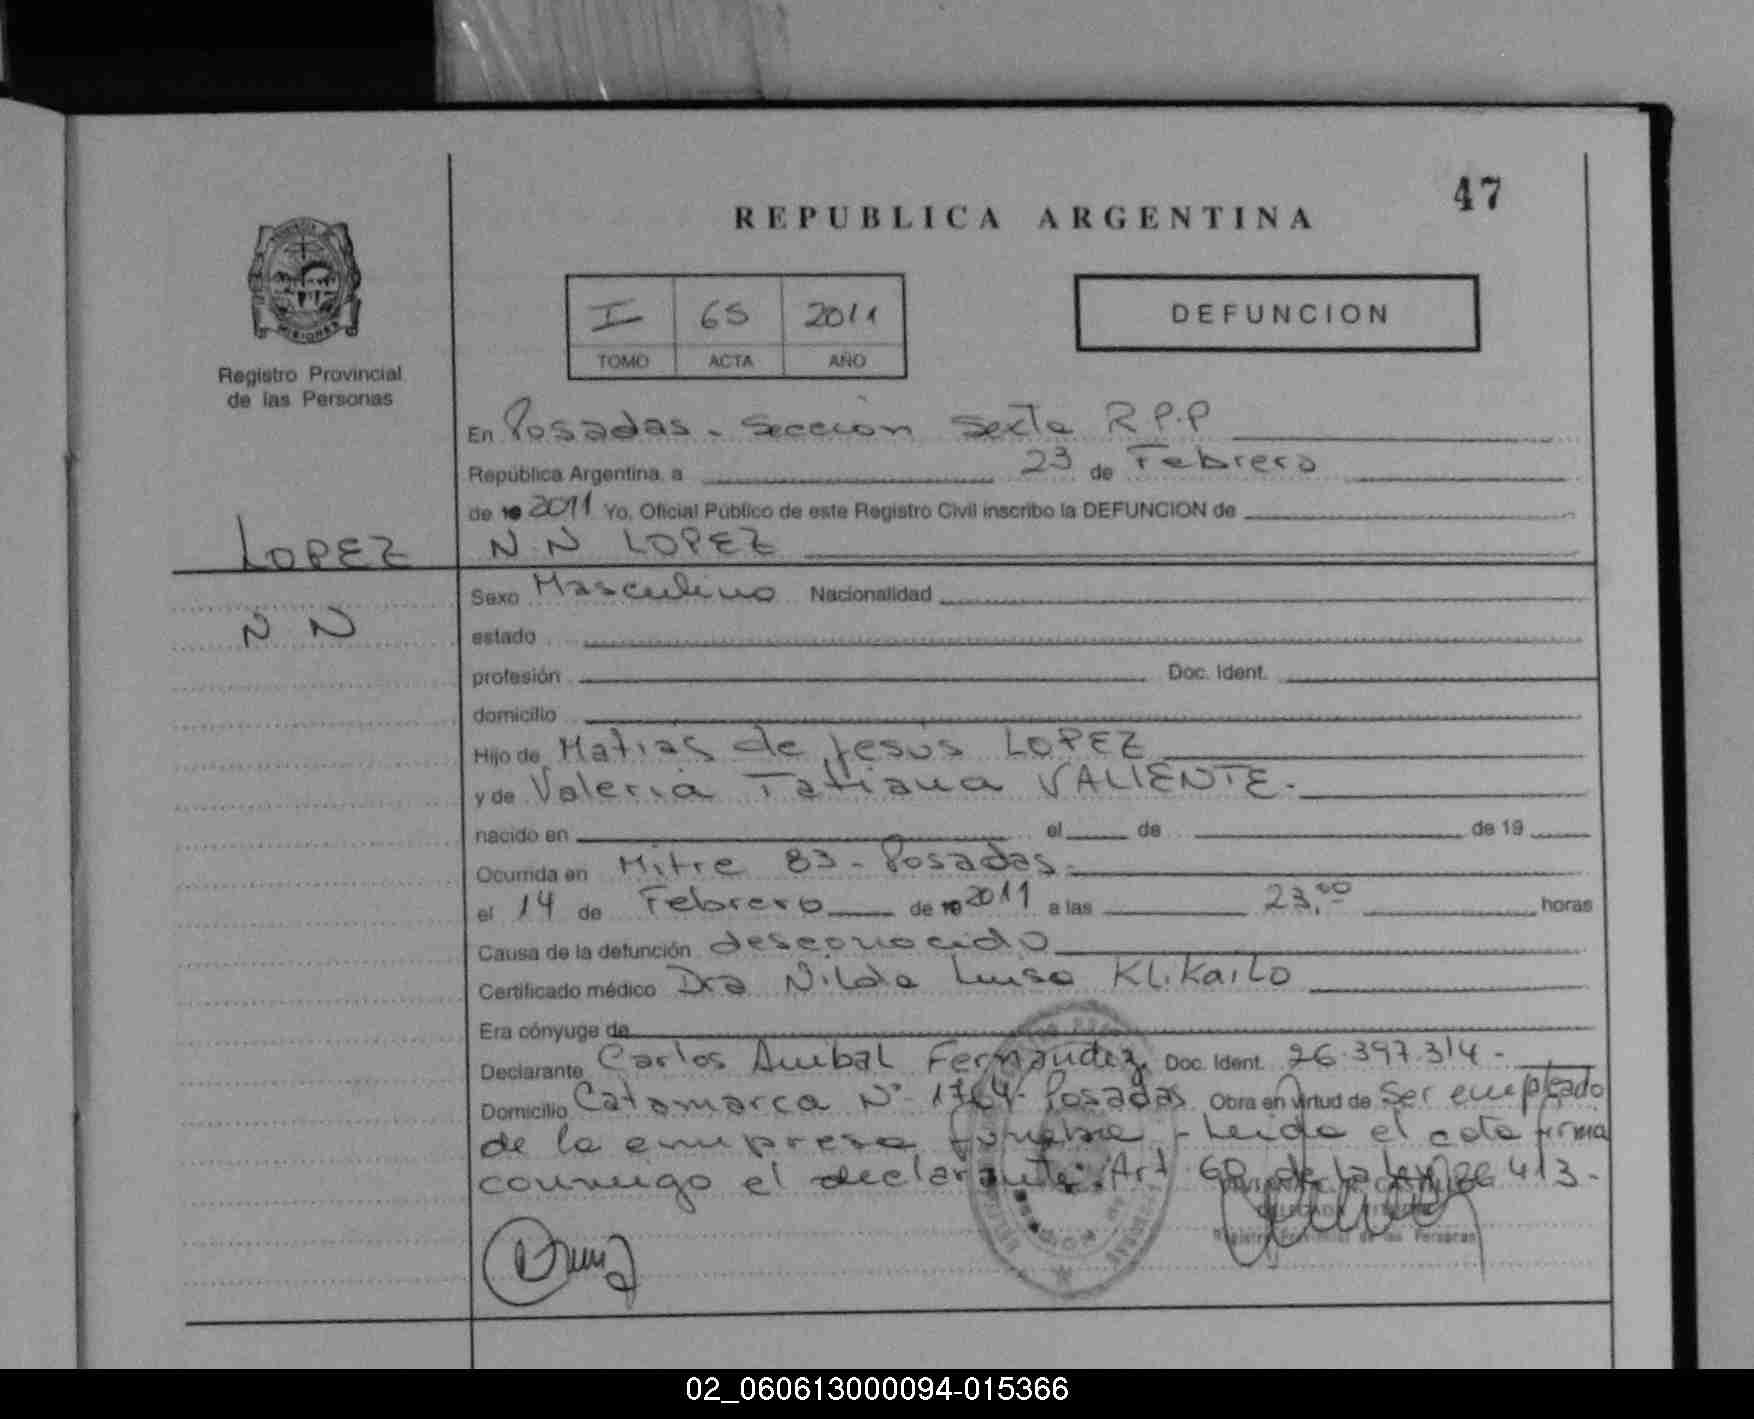 47
REPUBLICA ARGENTINA
MISIONES
Registro Provincial
de las Personas
I 65 2011
TOMO ACTA AÑO
DEFUNCION
En Posadas - Sección Sexta R.P.P
República Argentina, a 23 de Febrero
de 19 2011 Yo, Oficial Público de este Registro Civil inscribo la DEFUNCION de
LOPEZ
N.N LOPEZ
N N
Sexo Masculino Nacionalidad
estado
profesión Doc. Ident.
domicilio
Hijo de Matias de Jesús LOPEZ
y de Valeria Tatiana VALIENTE.-
nacido en el de de 19
Ocurrida en Mitre 83 - Posadas.-
el 14 de Febrero de 19 2011 a las 23,00 horas
Causa de la defunción desconocido
Certificado médico Dra Nilda Luisa Klikailo
Era cónyuge de
Declarante Carlos Anibal Fernandez Doc. Ident. 26.397.314.-
Domicilio Catamarca N° 1764- Posadas Obra en virtud de Ser empleado
de la empresa funebre - Leida el acta firma
conmigo el declarante. Art 60 de la ley 26413.-
Registro Provincial de las Personas
02_060613000094-015366